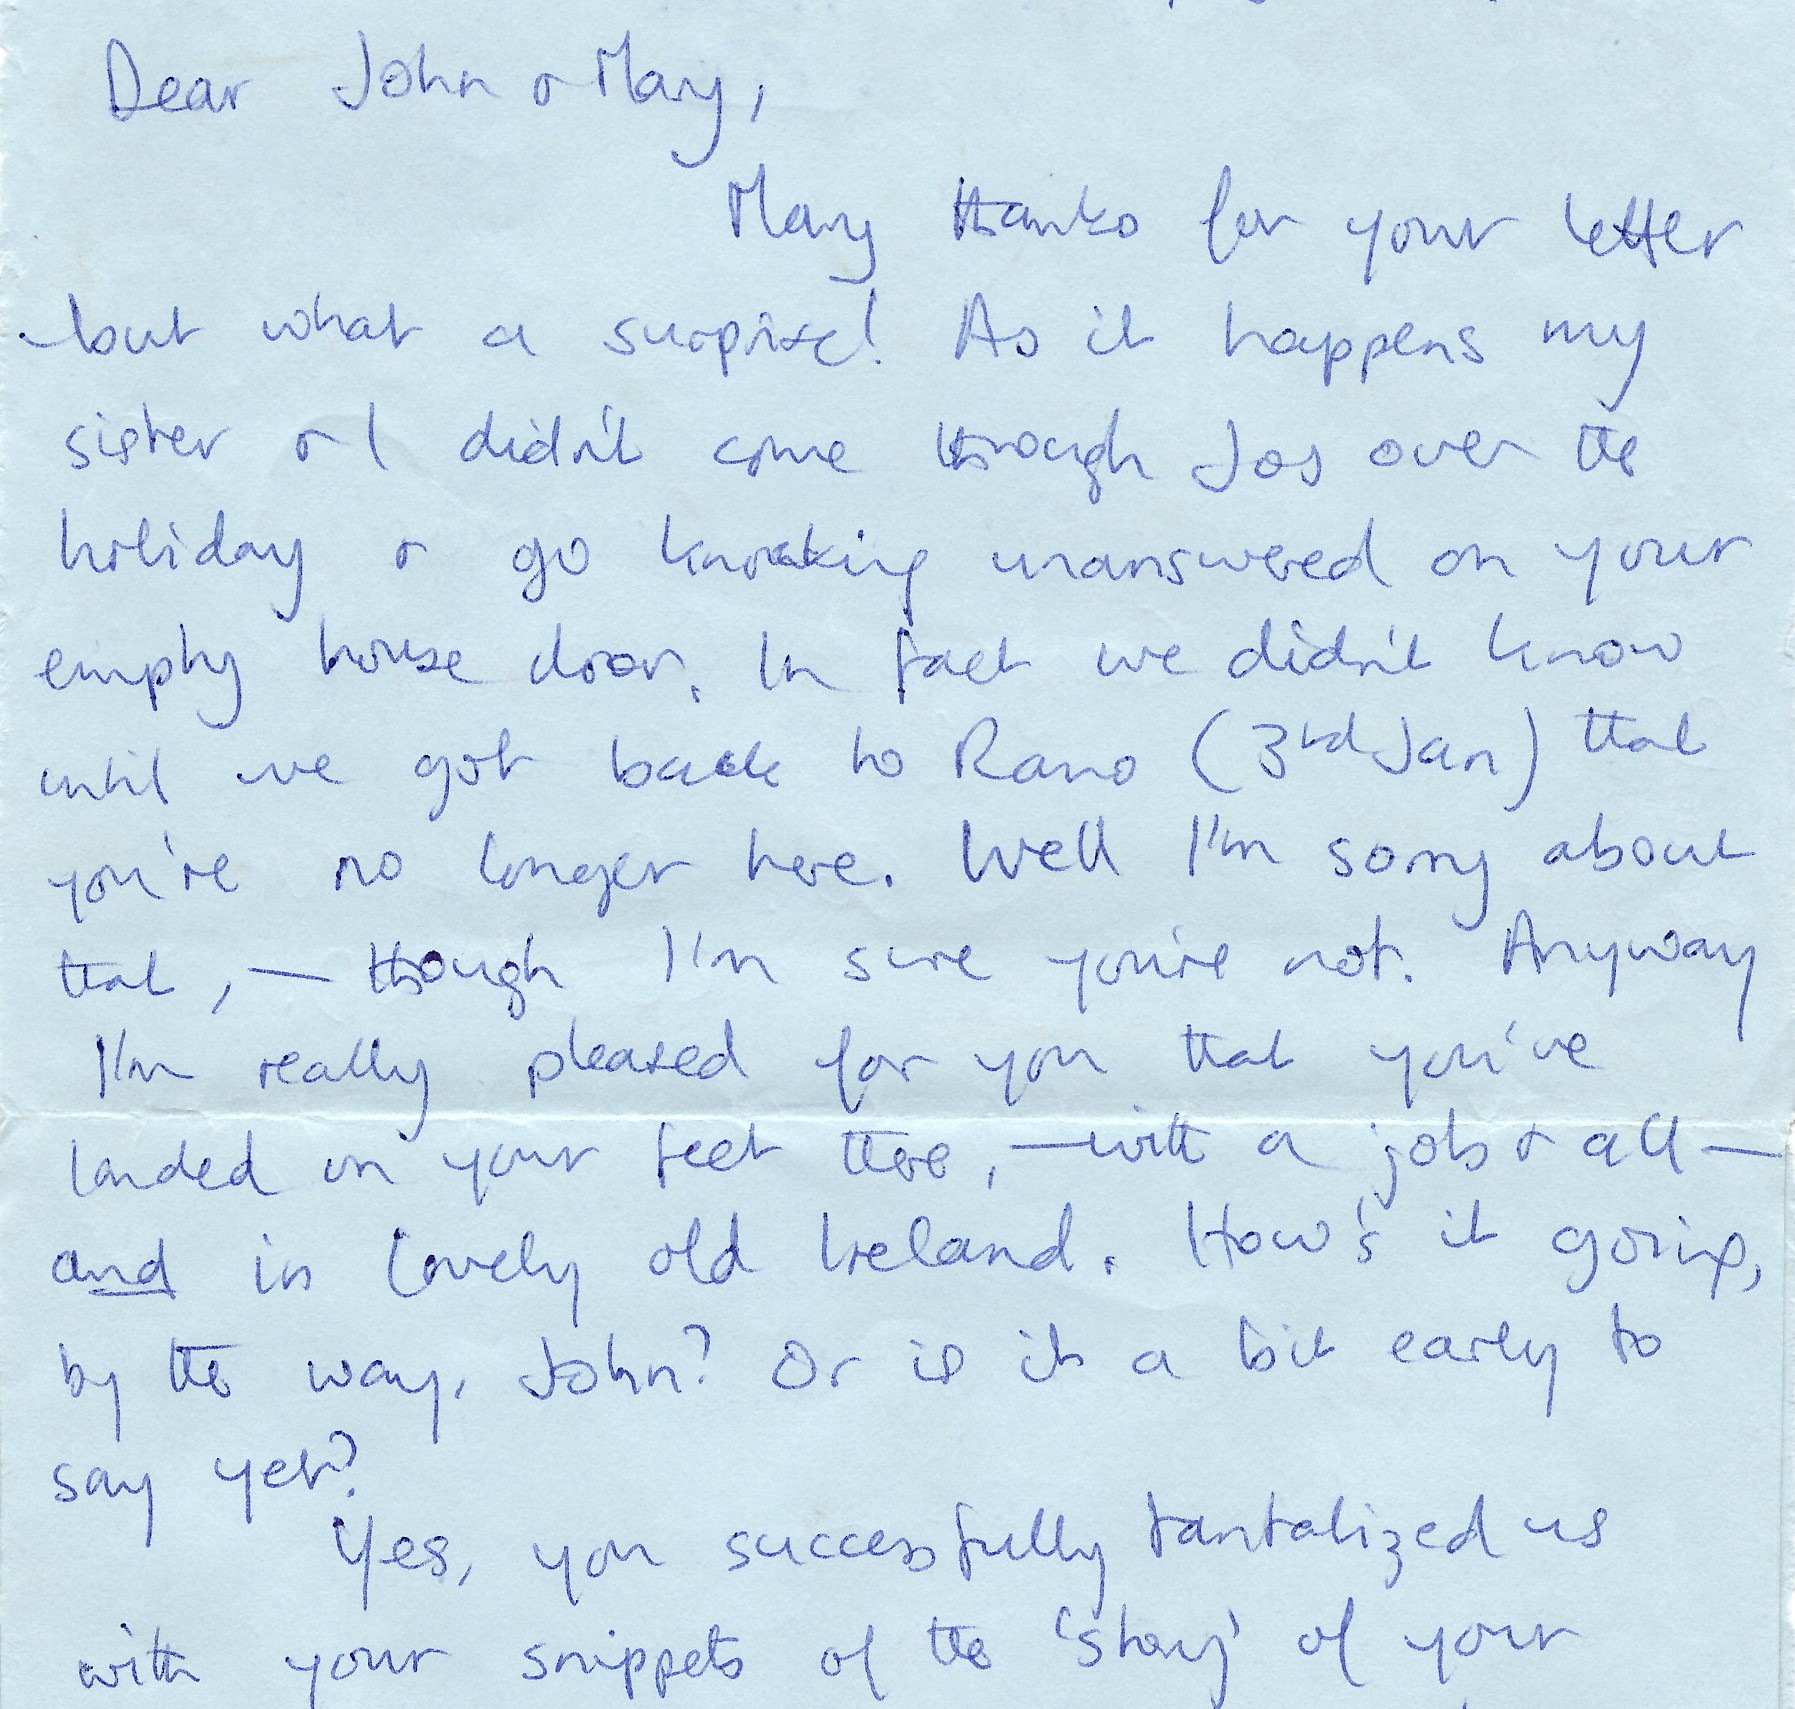 Dear John & Mary,
Many thanks for your letter
- but what a surprise! As it happens my
sister & I didn't come through Jos over the
holiday & go knocking unanswered on your
empty house door. In fact we didn't know
until we got back to Rano (3rd Jan) that
you're no longer here. Well I'm sorry about
that, — though I'm sure you're not. Anyway
I'm really pleased for you that you've
landed on your feet there, — with a job & all —
and in lovely old Ireland. How's it going,
by the way, John? Or is it a bit early to
say yet?
Yes, you successfully tantalized us
with your snippets of the 'story' of your